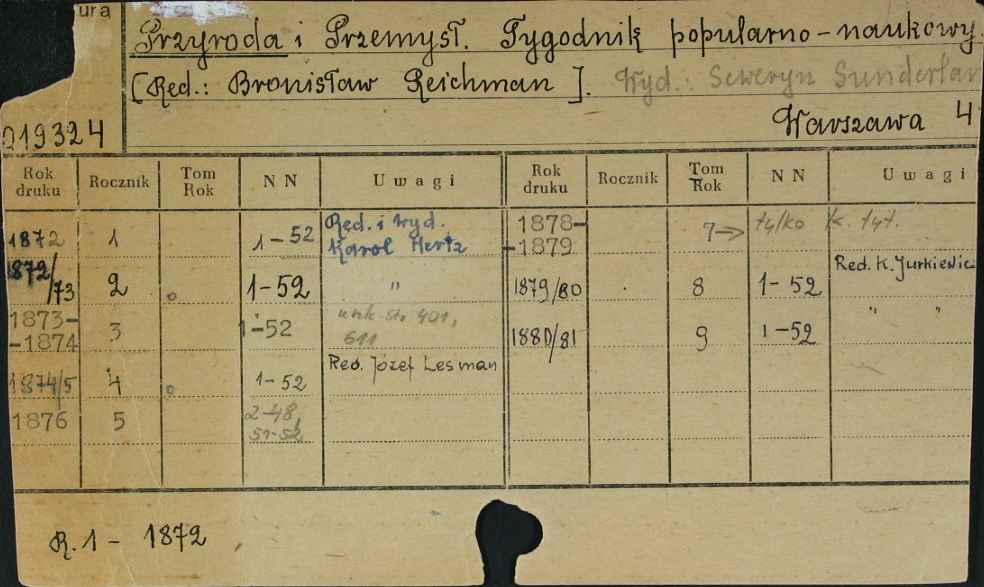 ura
Przyroda i Przemysł. Tygodnik popularno-naukowy.
[Red.: Bronisław Reichman]. Wyd.: Seweryn Sunderlan
019324 Warszawa 4
Rok druku Rocznik Tom Rok NN Uwagi Rok druku Rocznik Tom Rok NN Uwagi
1872 1 1-52 Red. i Wyd. Karol Hertz 1878--1879 7→ tylko k. tyt.
1872/73 2 o 1-52 " 1879/80 8 1-52 Red. K. Jurkiewic
1873--1874 3 1-52 str. 401, 611 1880/81 9 1-52 " "
1874/5 4 o 1-52 Red. Józef Lesman
1876 5 2-48, 51-52
R. 1 - 1872